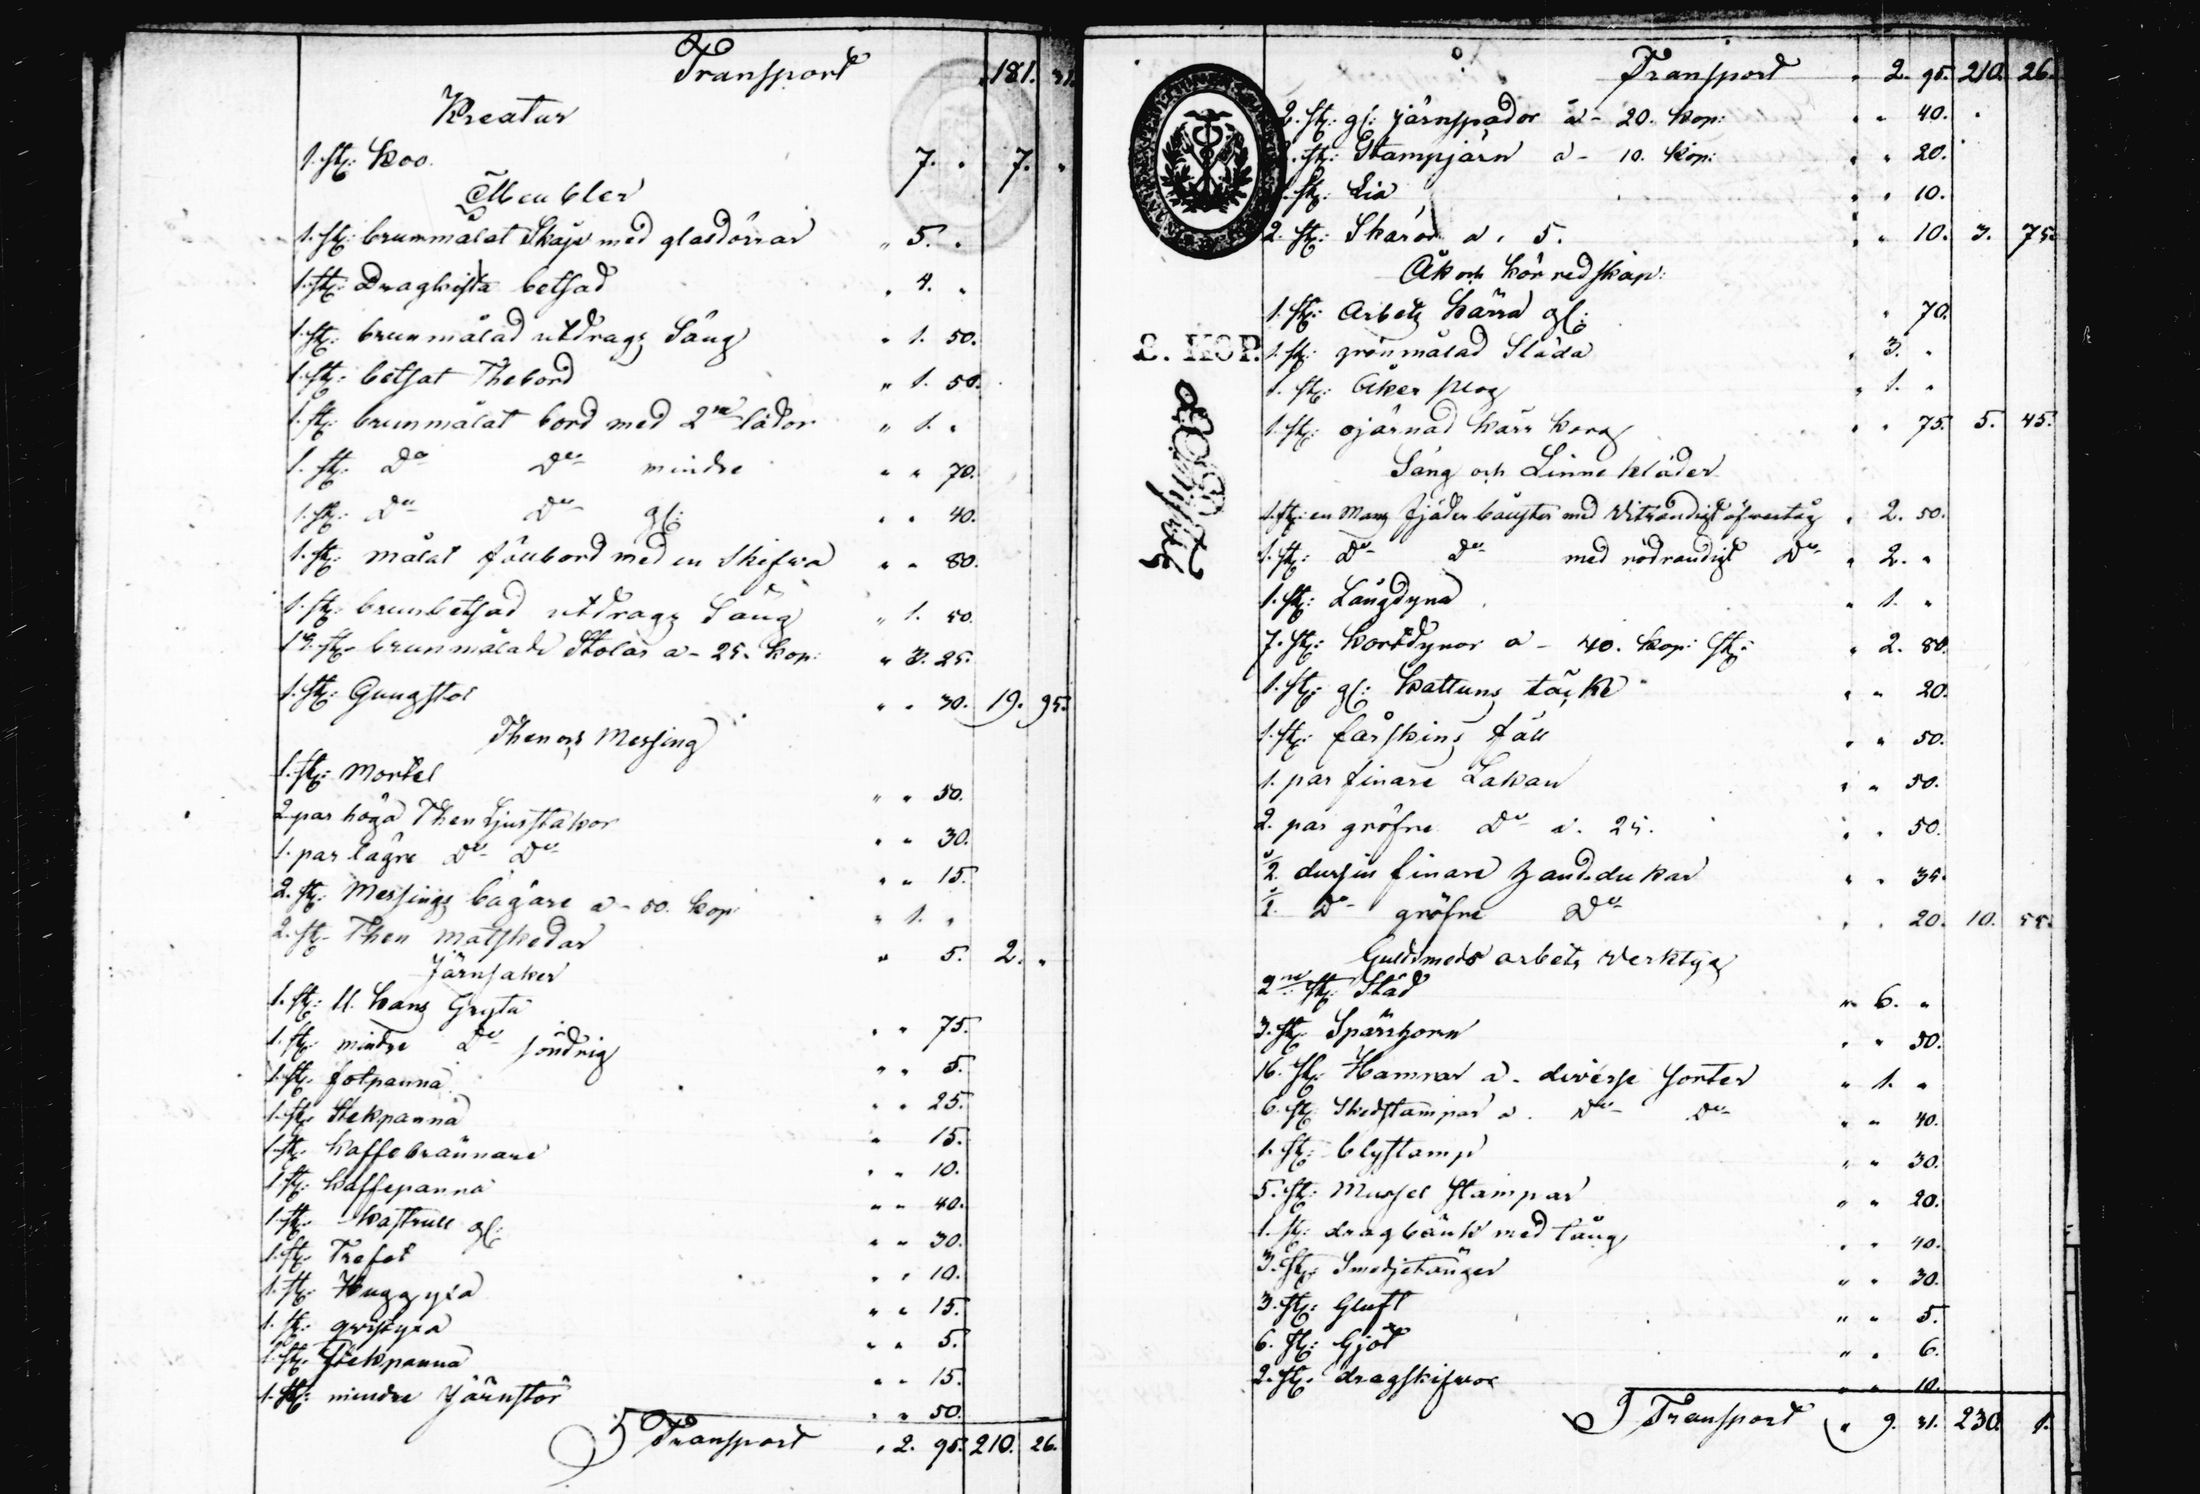 Transport „ 181. 31.
Kreatur
1. st: Koo. 7. „ 7. „
Meubler
1. st: brunmålat Skåp med glasdörrar „ 5. „
1. st: Dragkista betsad „ 4. „
1. st: brunmålad utdrags Säng „ 1. 50.
1. st: betsat Thebord „ 1. 50.
1. st: brunmålat bord med 2ne lådor „ 1. „
1. st: Do Do mindre „ „ 70.
1. st: Do Do gl: „ „ 40.
1. st: målat fällbord med en Skifva „ „ 80.
1. st: brunbetsad utdrags Säng „ 1. 50.
13. st: brunmålade Stolar a - 25. Kop: „ 3. 25.
1. st: Gungstol „ „ 30. 19. 95.
Then och Messing
1. st: Mortel „ „ 50.
2. par höga Then Ljusstakor „ „ 30.
1. par lägre Do Do „ „ 15.
2. st: Messings bägare a - 50. Kop: „ 1. „
2. st: Then Matskedar „ 5. 2. „
Järnsaker
1. st: 11. Kans Gryta „ „ 75.
1. st: mindre Do söndrig „ „ 5.
1. st: fotpanna „ „ 25.
1. st: Stekpanna „ 15.
1. st: Kaffebrännare „ „ 10.
1. st: Kaffepanna „ „ 40.
1. st: Kastrull gl: „ „ 30.
1. st: Trefot „ „ 10.
1. st: Huggyxa „ „ 15.
1. st: yxa „ „ 5.
1. st: Stekpanna „ „ 15.
1. st: mindre Järnstör „ „ 50.
Transport „ 2. 95. 210. 26.
Transport „ 2. 95. 210. 26.
2. st: gl: järnspador a - 20. Kop: „ „ 40. „
2. st: Stampjärn a - 10. Kop: „ „ 20.
st: Lia „ „ 10.
2. st: Skäror a . 5. „ „ 10. 3. 75.
Åk och Kör redskap:
1. st: Arbets Kärra gl: „ 70.
2. KOP.
1. st: grönmålad Släda „ 3. „
1. st: Åker plog „ 1. „
1. st: ojärnad Kärr Korg „ „ 75. 5. 45.
Säng och Linne Kläder
1. st: en Mans fjäder bolster med Vitrandigt öfvertåg „ 2. 50.
1. st: Do Do med rödrandigt Do „ 2. „
1. st: Långdyna „ 1. „
7. st: Kortdynor a - 40. Kop: st: „ 2. 80.
1. st: gl: Kattuns täcke „ „ 20.
1. st: fårskins fäll „ „ 50.
1. par finare Lakan „ „ 50.
2. par gröfre Do a. 25. „ „ 50.
1/2 dussin finare handdukar „ „ 35.
1/2 Do gröfre Do „ „ 20. 10. 55.
Guldsmeds arbets Verktyg
2ne st: Städ „ 6. „
3. st: Spärrhorn „ „ 50.
16. st: Hamrar a - diverse sorter „ 1. „
6. st: Skedstampar a . Do Do „ „ 40.
1. st: blystamp „ „ 30.
5. st: Mussel Stampar „ „ 20.
1. st: dragbänk med tång „ „ 40.
3. st: Smedjetänger „ „ 30.
3. st: Gluft „ „ 5.
6. st: Gjöt „ „ 6.
2. st: dragskifvor „ „ 10.
Transport „ 9. 31. 230. 1.